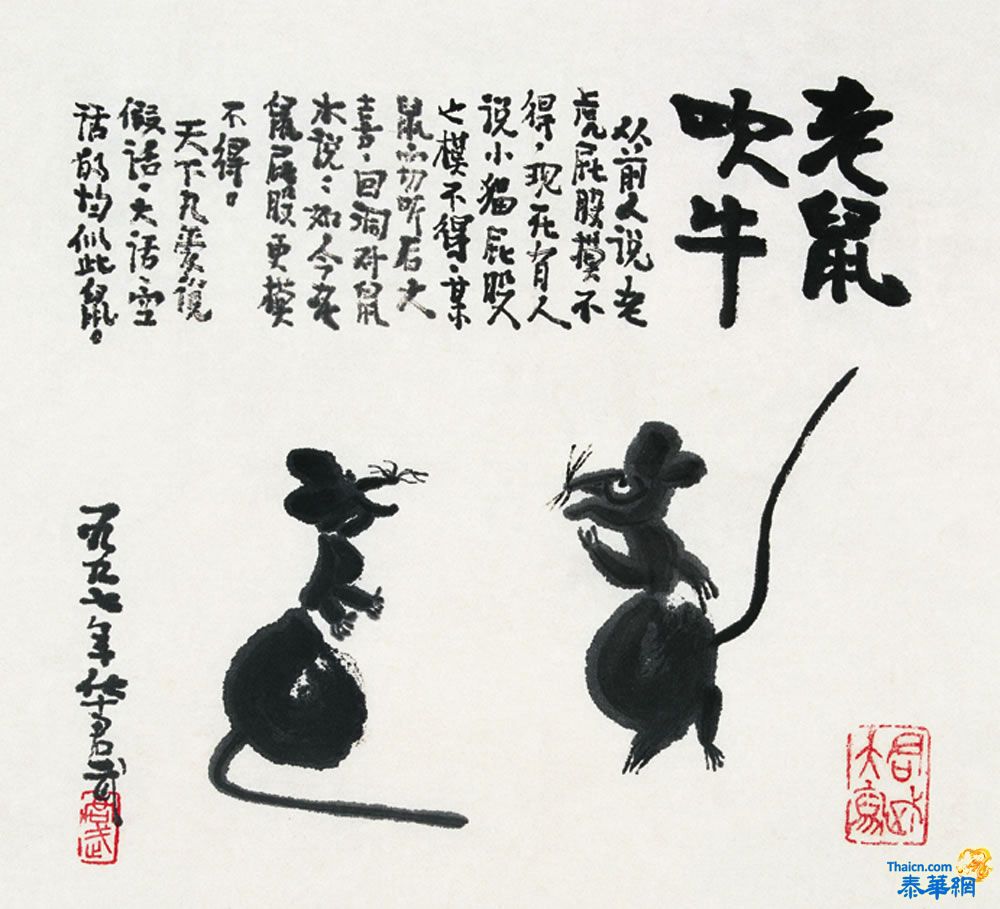 老鼠
吹牛
从前人说老
虎屁股摸不
得，现在有人
说小貓屁股
也摸不得，某
鼠窃听后大
喜，回洞对鼠
说：如今老
鼠屁股更摸
不得。
天下凡爱说
假话、大话、空
话的均似此鼠。
一九九七年华君武
君武
Thaicn.com
泰華網